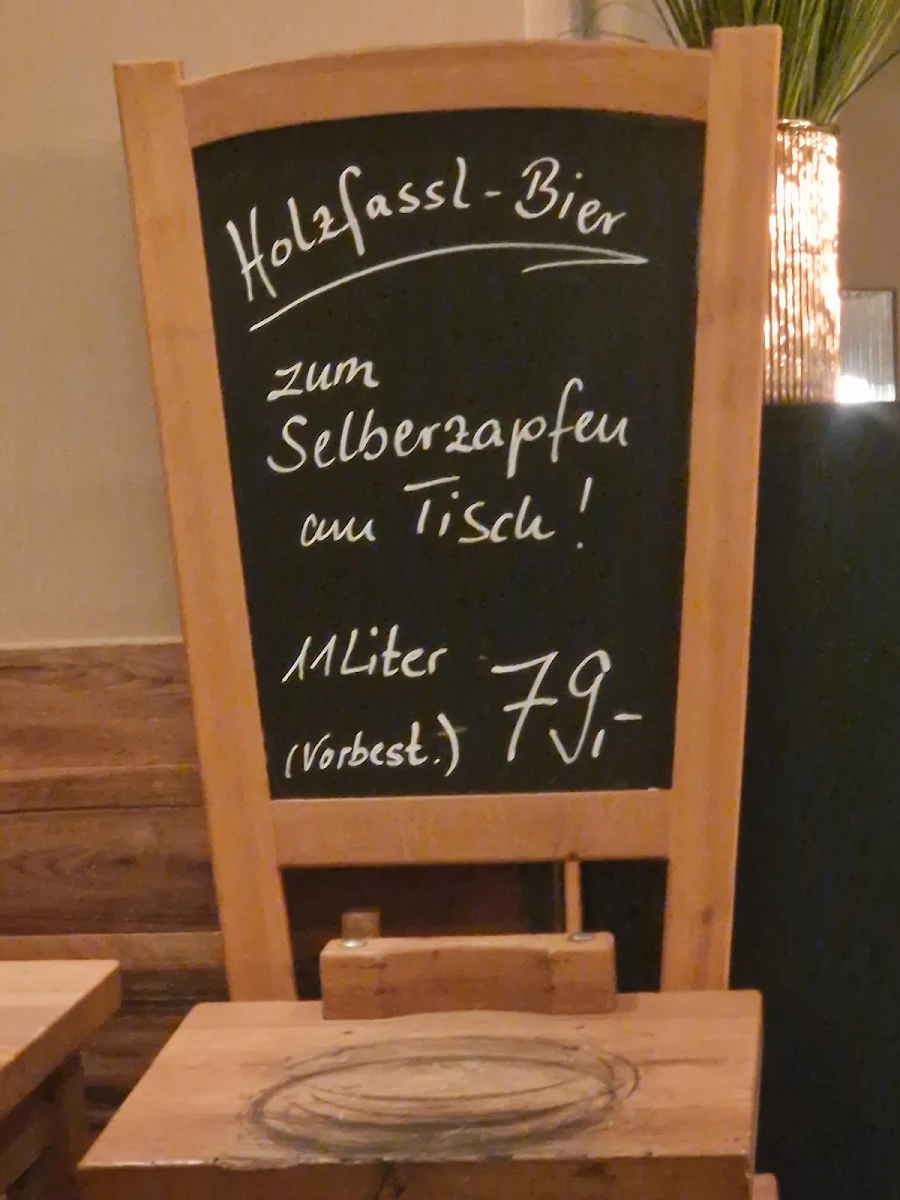 Holzfassl-Bier
zum
Selberzapfen
am Tisch!
11Liter 79,-
(Vorbest.)